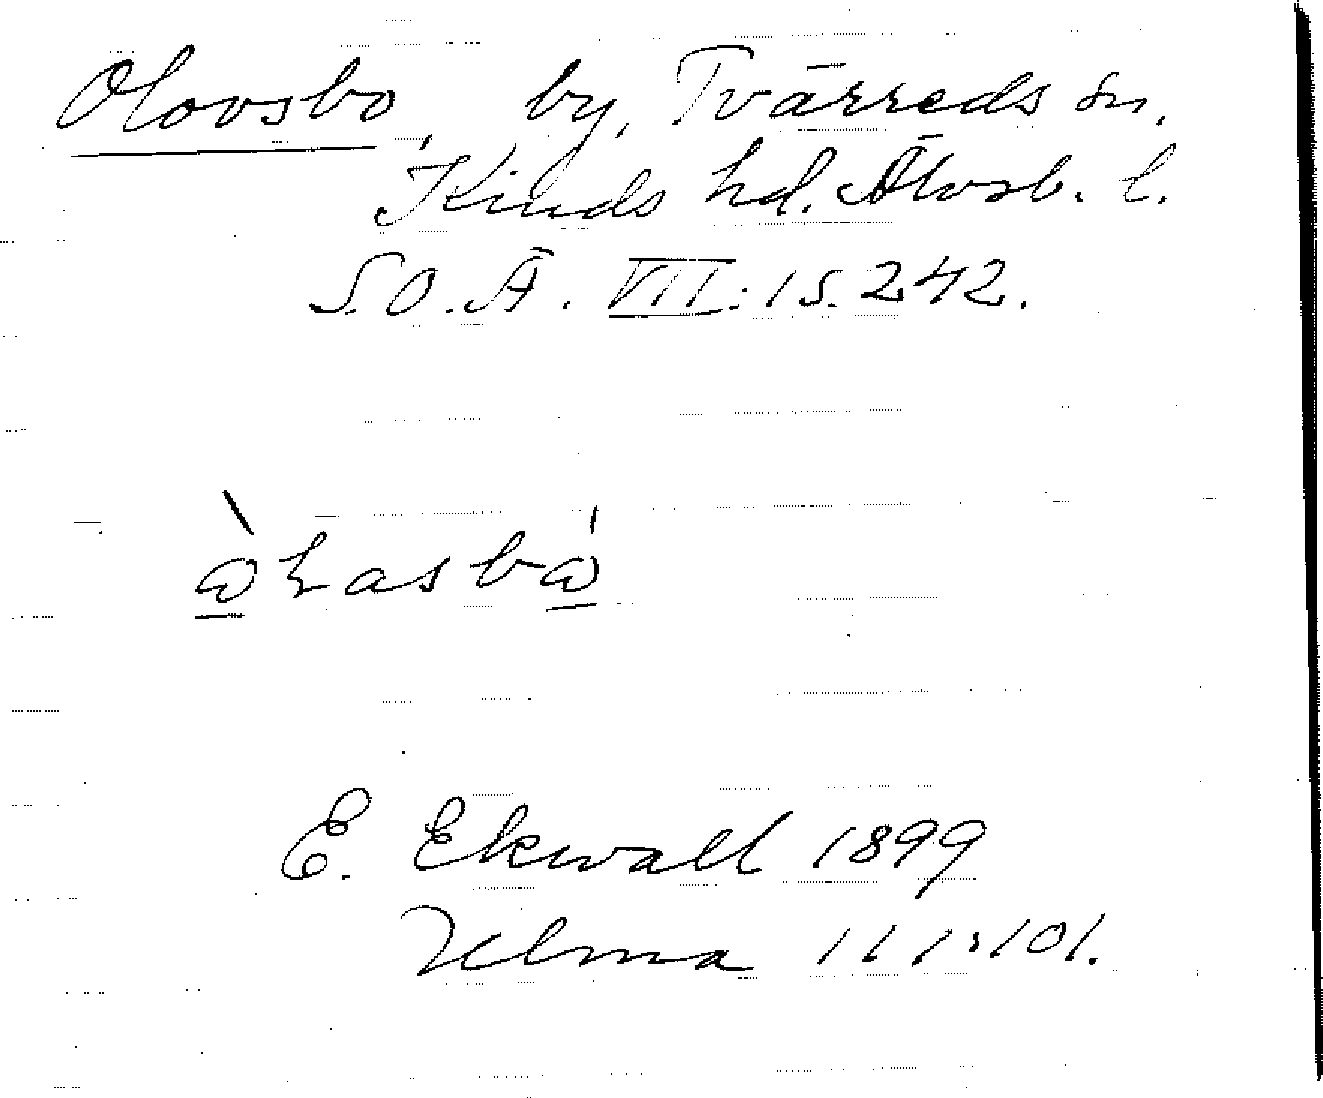 Olovsbo, by, Tvärreds sn.
Kinds hd. Älvsb. l.
S.O.Ä. VII:1 s. 242.
E. Ekwall 1899
Ulma 111:101.